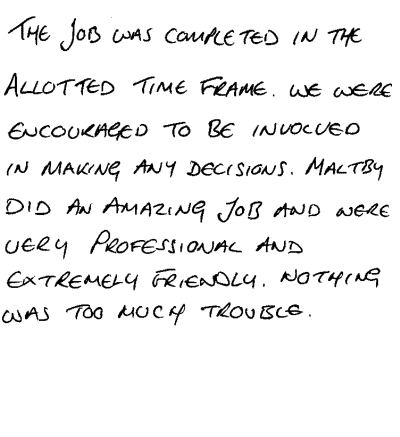 THE JOB WAS COMPLETED IN THE
ALLOTTED TIME FRAME. WE WERE
ENCOURAGED TO BE INVOLVED
IN MAKING ANY DECISIONS. MALTBY
DID AN AMAZING JOB AND WERE
VERY PROFESSIONAL AND
EXTREMELY FRIENDLY. NOTHING
WAS TOO MUCH TROUBLE.